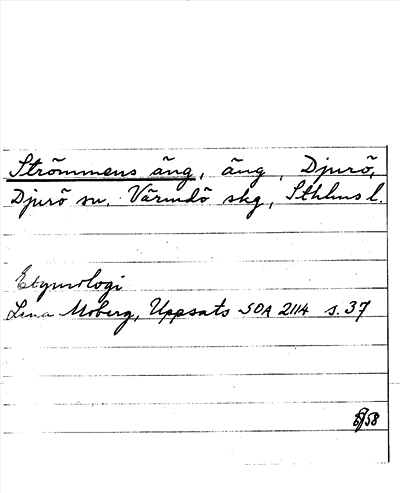 Strömmens äng, äng, Djurö,
Djurö sn. Värmdö skg, Sthlms l.
Etymologi
Lena Moberg, Uppsats SOA 2114 s. 37